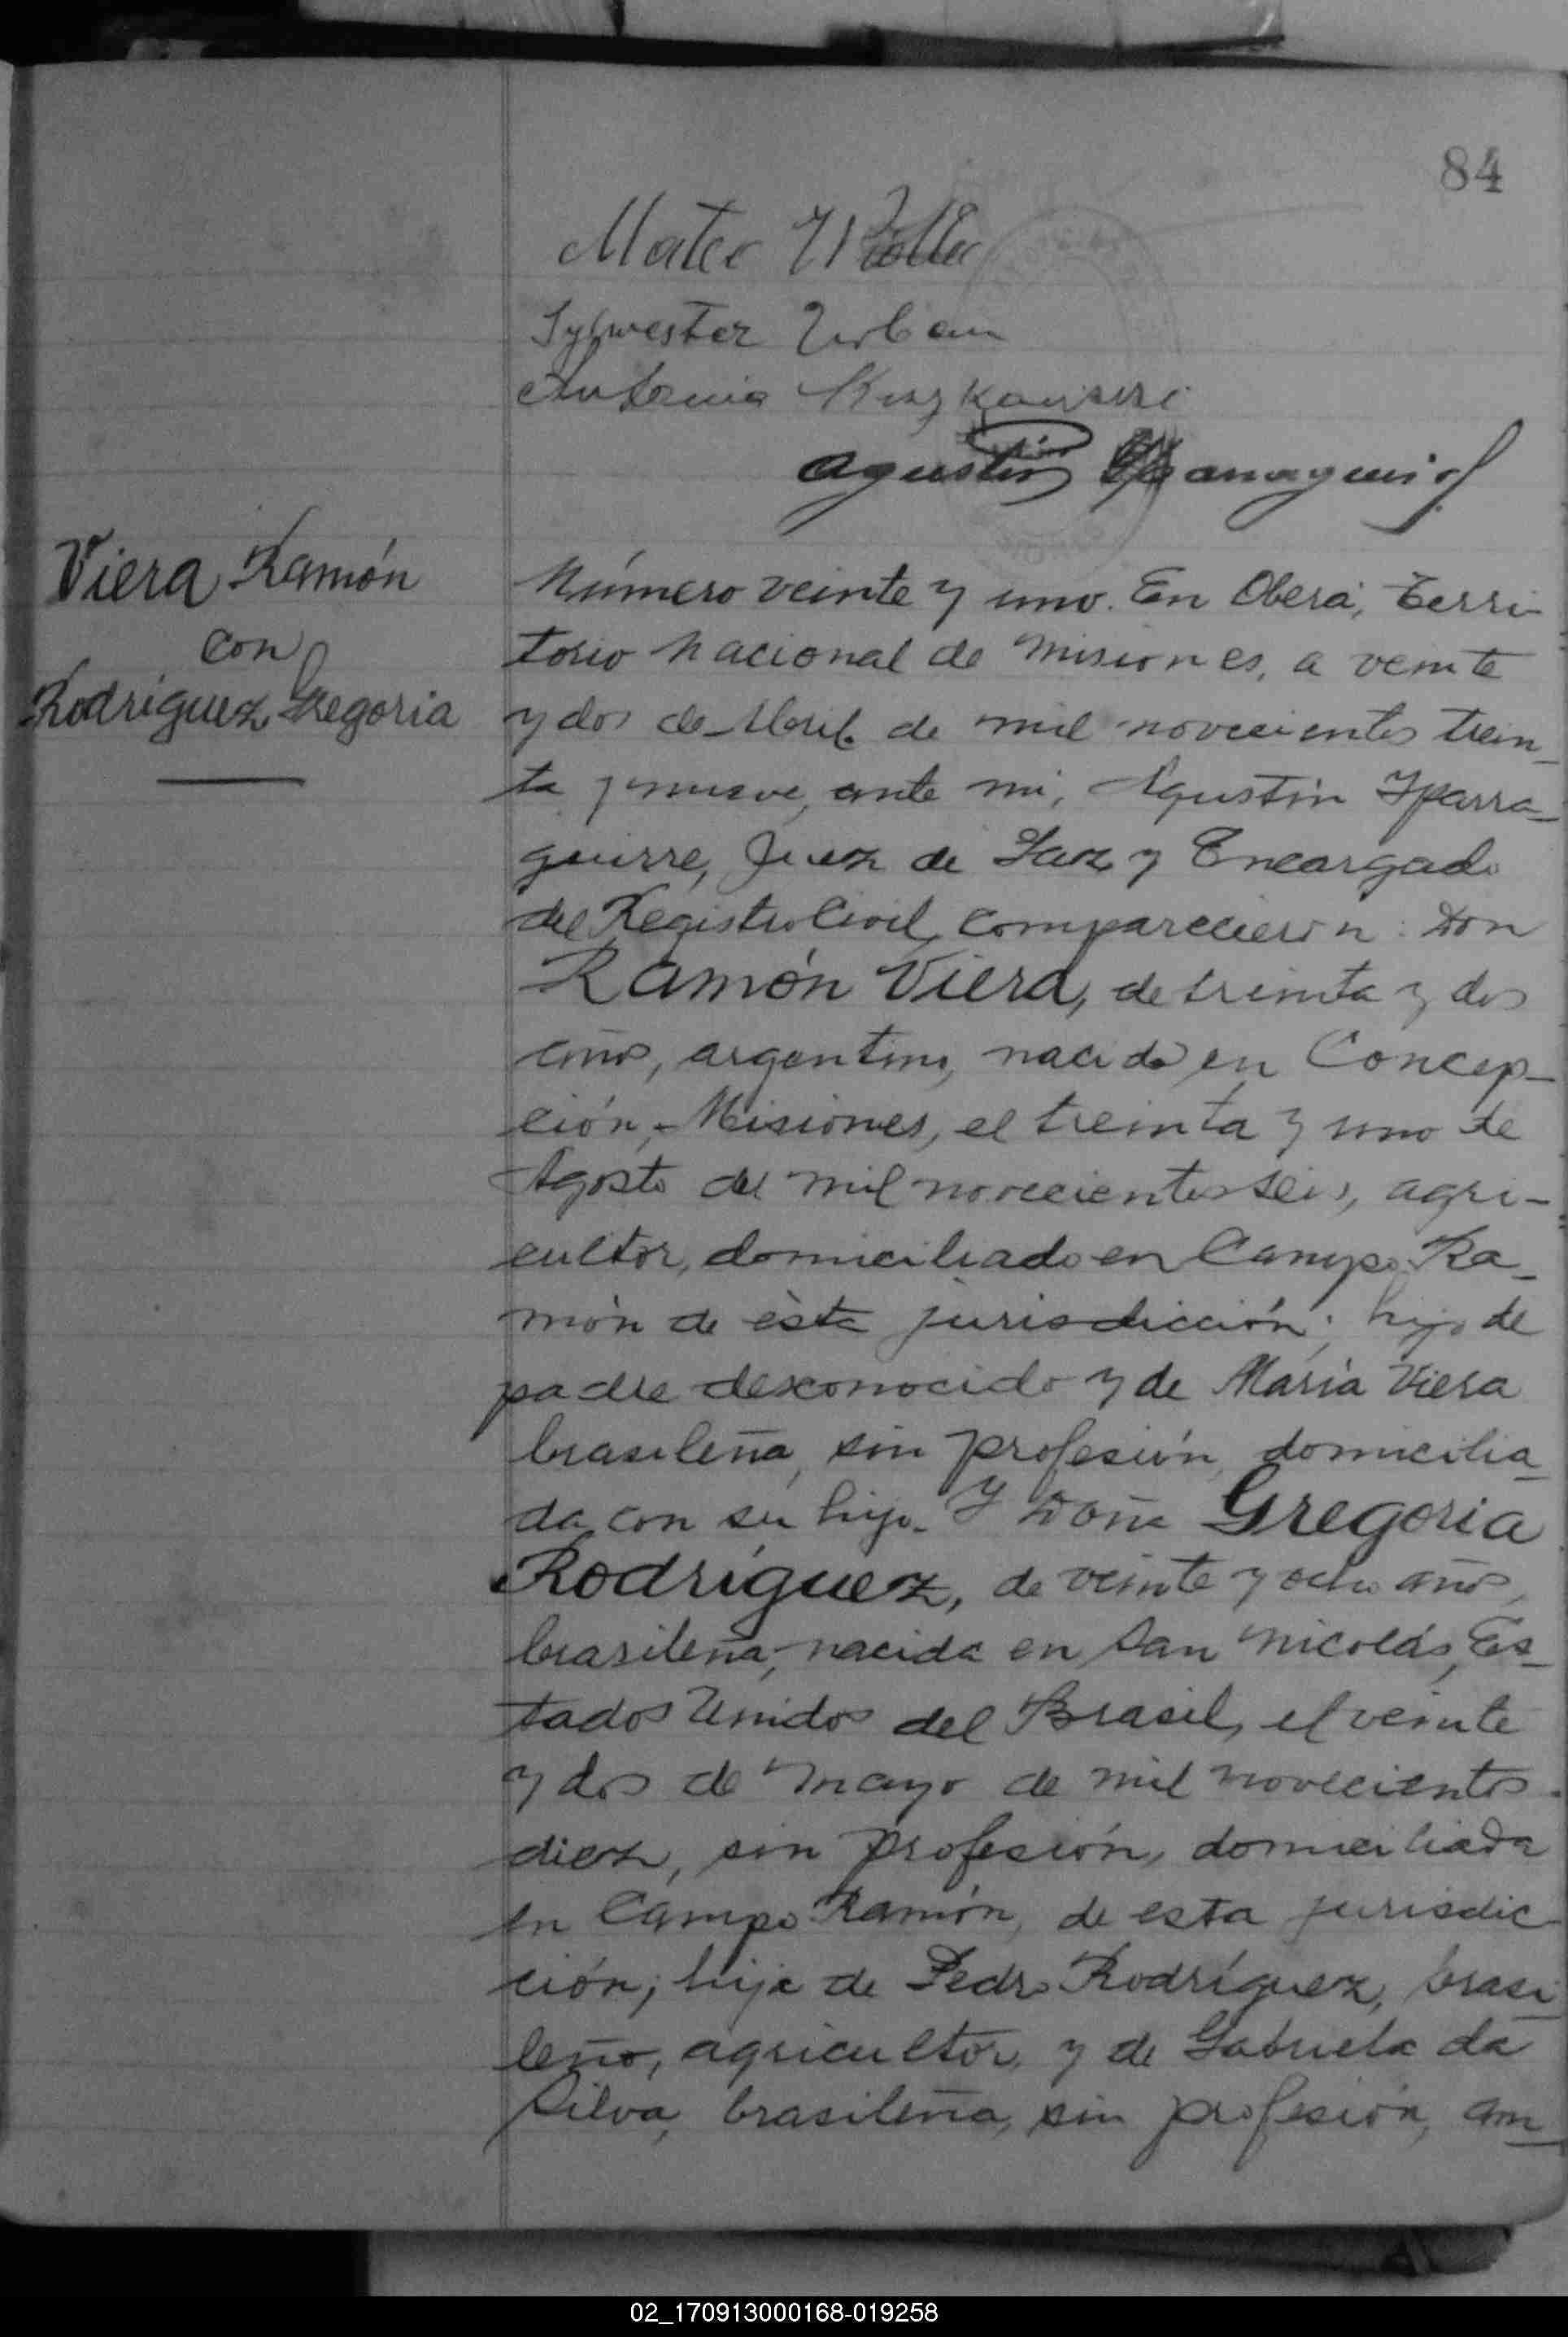 84
Mateo
Sylwester Urban
Antonia
Agustín
Viera Ramón
con
Rodríguez Gregoria
Número veinte y uno. En Oberá, Terri-
torio Nacional de Misiones, a veinte
y dos de Abril de mil novecientos trein-
ta y nueve, ante mí, Agustín Yparra-
guirre, Juez de Paz y Encargado
del Registro Civil, comparecieron: Don
Ramón Viera, de treinta y dos
años, argentino, nacido en Concep-
ción, Misiones, el treinta y uno de
Agosto del mil novecientos seis, agri-
cultor, domiciliado en Campo Ra-
món de ésta jurisdicción; hijo de
padre desconocido y de María Viera
brasileña, sin profesión, domicilia-
da con su hijo. Y Doña Gregoria
Rodríguez, de veinte y ocho años,
brasileña, nacida en San Nicolás, Es-
tados Unidos del Brasil, el veinte
y dos de Mayo de mil novecientos
diez, sin profesión, domiciliada
en Campo Ramón, de esta jurisdic-
ción; hija de Pedro Rodríguez, brasi-
leño, agricultor, y de Gabriela da
Silva, brasileña, sin profesión, am-
02_170913000168-019258